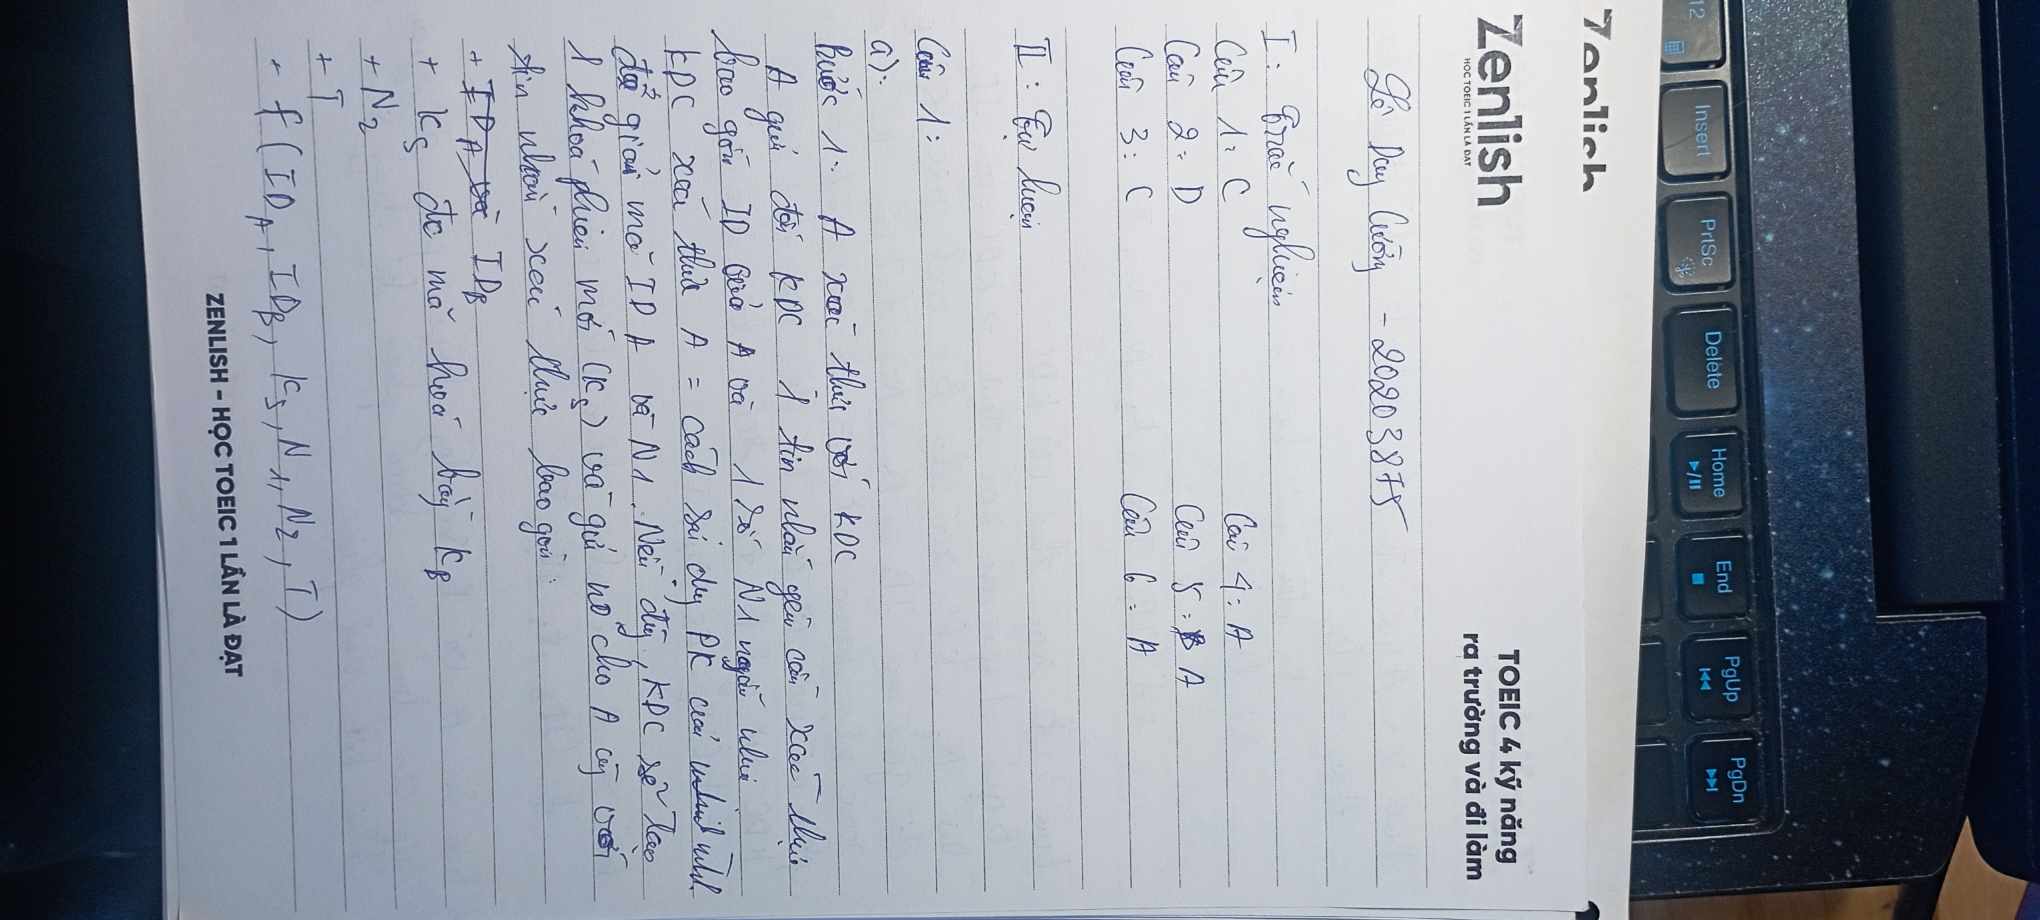 12
Insert
PrtSc
Delete
Home
End
PgUp
PgDn
Zenlish
Zenlish
HỌC TOEIC 1 LẦN LÀ ĐẠT
TOEIC 4 kỹ năng
ra trường và đi làm
Lê Duy Cường - 20203875
I: Trắc nghiệm
Câu 1: C
Câu 4: A
Câu 2: D
Câu 5: A
Câu 3: C
Câu 6: A
II: Tự luận
Câu 1:
a):
Bước 1: A xác thực với KDC
A gửi đến KDC 1 tin nhắn yêu cầu xác thực
bao gồm ID của A và 1 số N1 ngẫu nhiên
KDC xác thực A = cách sử dụng PK của mình
để giải mã ID A và N1. Nếu đúng, KDC sẽ tạo
1 khoá phiên mới (Ks) và gửi nó cho A cùng với
tin nhắn xác thực bao gồm:
+ ID_A và ID_B
+ K_S đc mã hoá bằng K_B
+ N_2
+ T
- f(ID_A, ID_B, K_S, N_1, N_2, T)
ZENLISH - HỌC TOEIC 1 LẦN LÀ ĐẠT